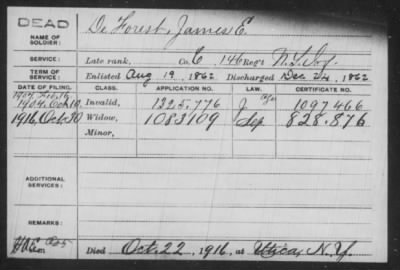 DEAD
NAME OF SOLDIER: De Forest, James E.
SERVICE: Late rank, Co. E, 146 Reg't N.Y. Inf.
TERM OF SERVICE: Enlisted Aug 19, 1862 Discharged Dec 24, 1862
DATE OF FILING. CLASS. APPLICATION NO. LAW. CERTIFICATE NO.
1904, Oct. 10 Invalid, 1325.776 J 1097466
1916, Oct 30 Widow, 1083109 Sep 828.876
Minor,
ADDITIONAL SERVICES:
REMARKS:
Died Oct. 22, 1916, at Utica, N.Y.